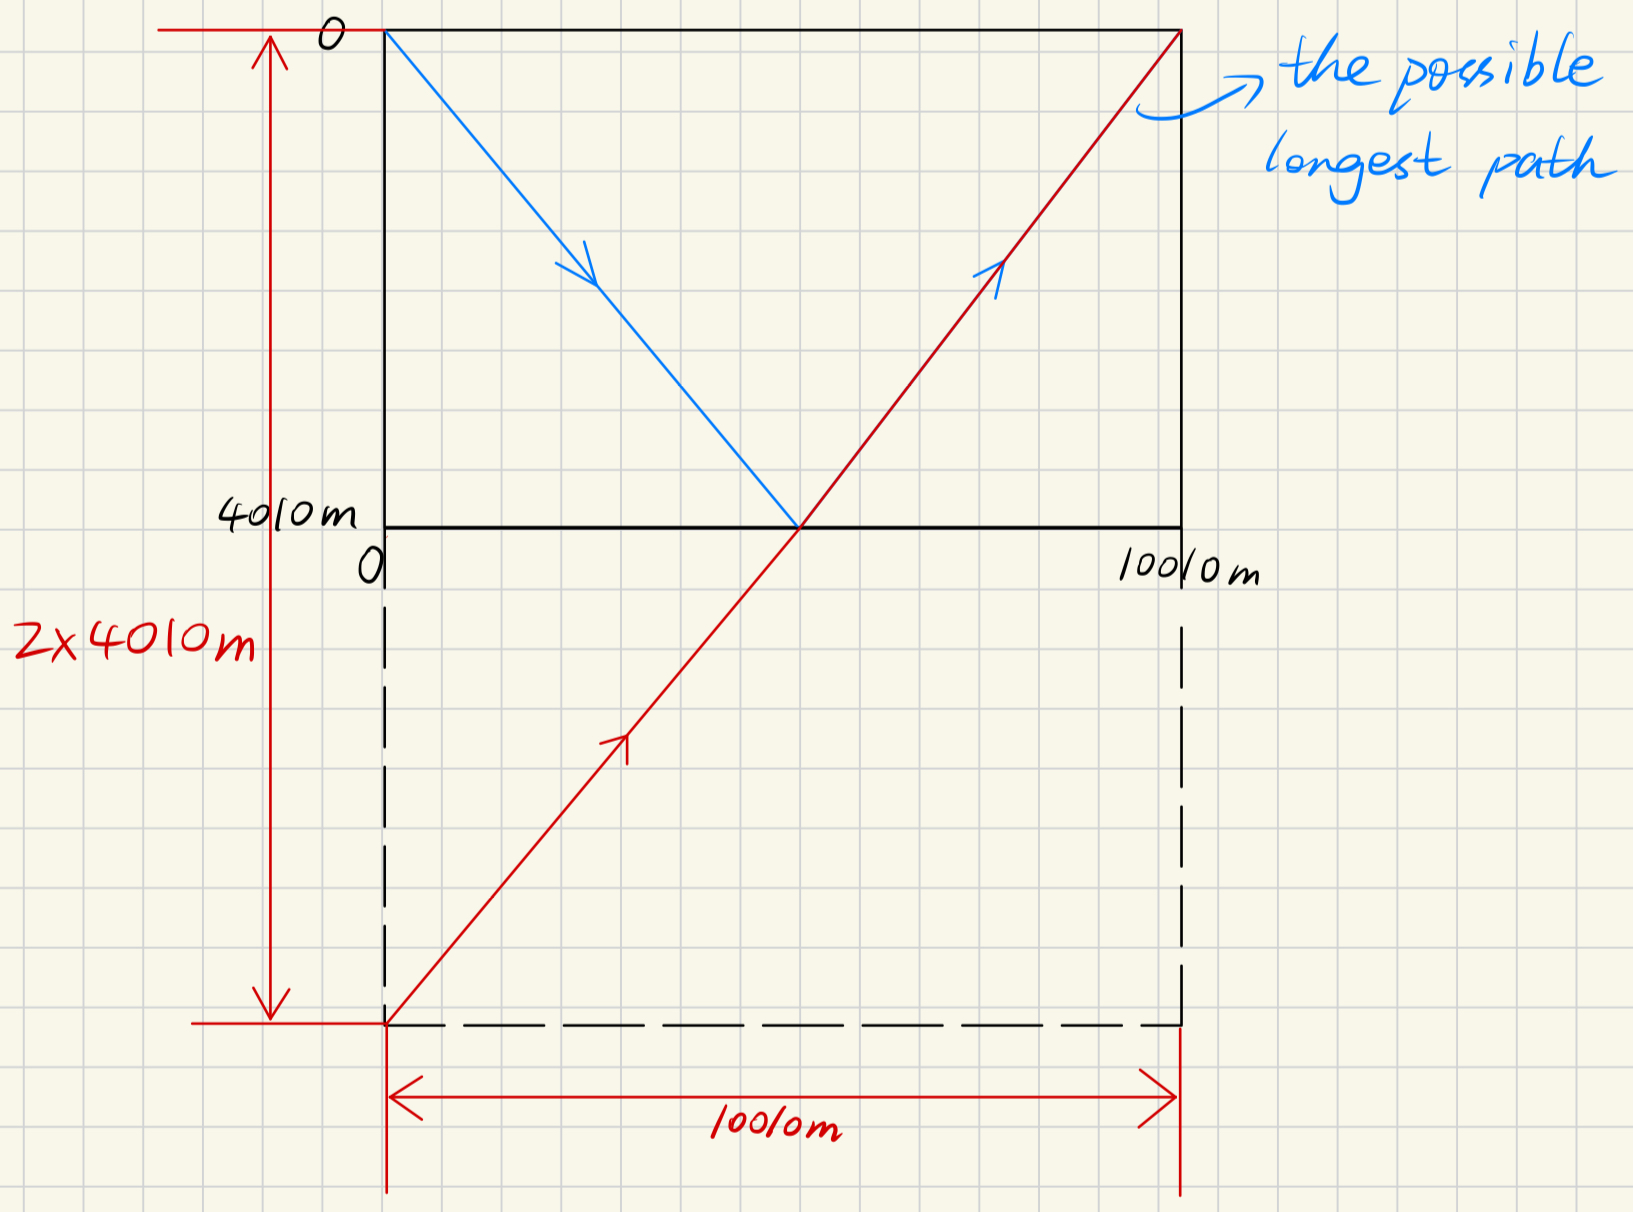 0
the possible
longest path
4010m
0
10010m
2x4010m
10010m